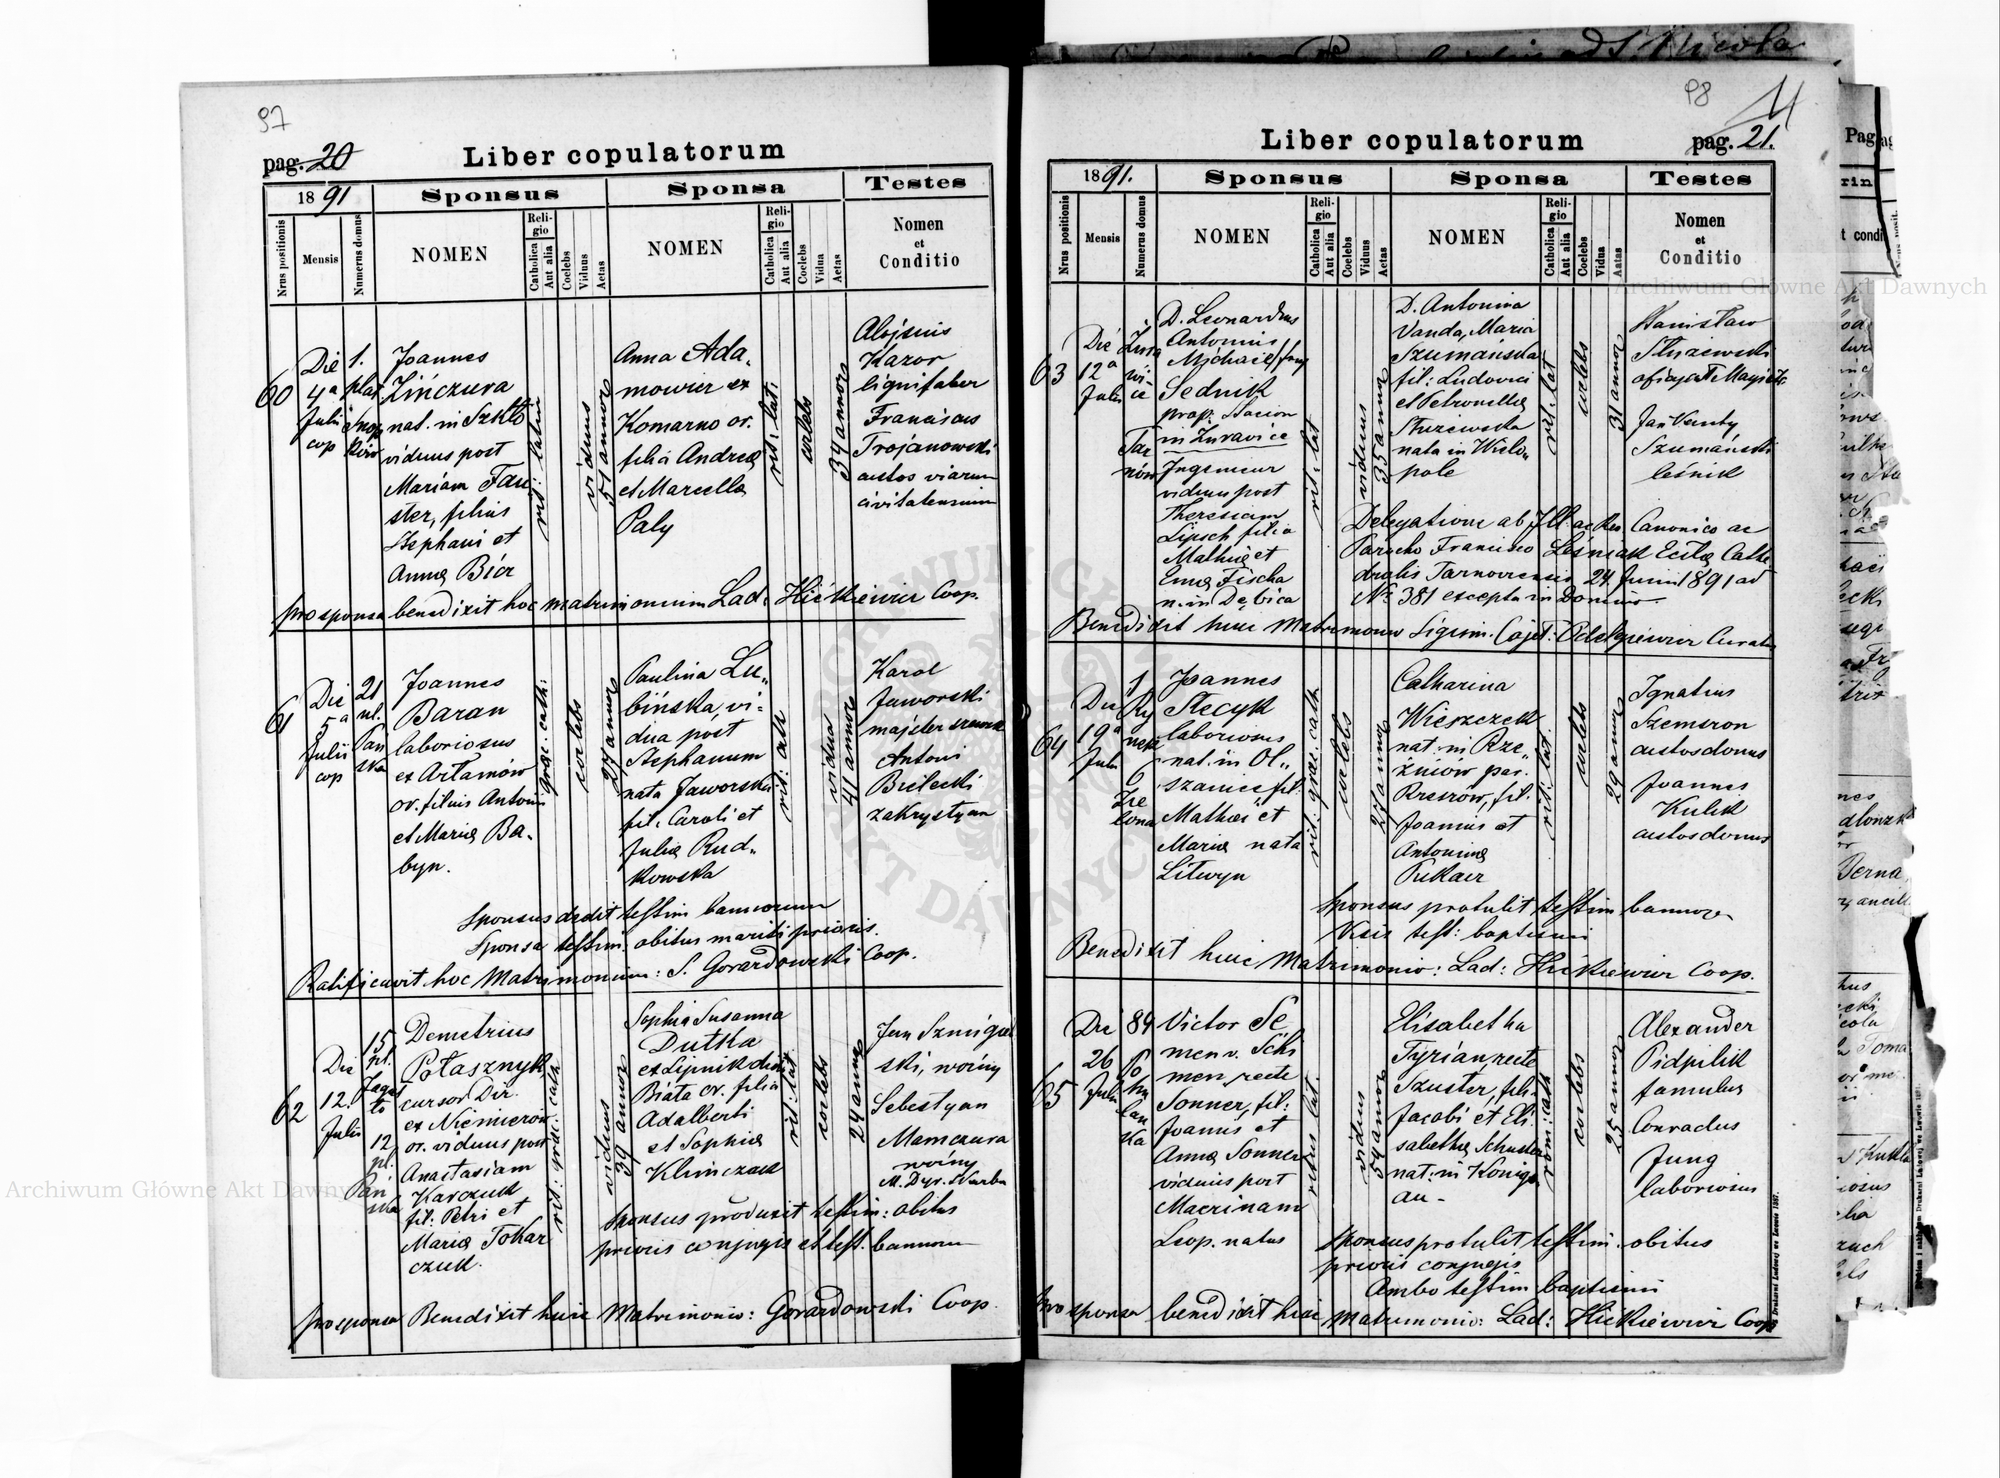 97
pag. 20
Liber copulatorum
1891
Sponsus
Sponsa
Testes
Nrus positionis
Mensis
Numerus domus
NOMEN
Religio
Catholica
Aut alia
Coelebs
Viduus
Aetas
NOMEN
Religio
Catholica
Aut alia
Coelebs
Vidua
Aetas
Nomen
et
Conditio
60
Die
4a
Julii
cop
1.
plac
Joannes
Zińczura
nat. in Szkło
viduus post
Mariam Fau
ster, filius
Stephani et
Anna Bicz
rit: latin
viduus
51 annor
Anna Ada-
mowicz ex
Komarno or.
filia Andreæ
et Marcella
Paly
rit: lat:
coelebs
34 annor
Alojsius
Kazor
lignifaber
Franciscus
Trojanowski
custos viarum
civitatensium
pro sponsa benedixit hoc matrimonium Lad. Hićkiewicz Coop.
61
Die
5a
Julii
cop
21
ul.
Pan
ska
Joannes
Baran
laboriosus
ex Artamów
or. filius Antonii
et Mariæ Ba-
byn.
græc. cath:
coelebs
27 annor
Paulina Lu-
bińska, vi-
dua post
Stephanum
nata Jaworska
fil. Caroli et
Julia Rud-
kowska
vidua
41 annor
Karol
Jaworski
majster szewsk
Antoni
Bielecki
zakrystyan
Sponsus dedit testim bannorum
Sponsa testim. obitus mariti prioris.
Ratificavit hoc Matrimonium: S. Gorazdowski Coop.
62
Die
12.
Julii
15
pl.
12
pl.
Pań
ska
Demetrius
Potasznyk
cursor Dir.
ex Niemirow
or. viduus post
Anastasiam
Karczuk
fil: Petri et
Mariæ Tokar
czuk.
rit: græc: cath.
viduus
39 annor
Sophia Susanna
Dutka
ex Lipnik
Biała or. filia
Adalberti
et Sophiæ
Klimczak
rit: lat
coelebs
24 annor
Jan Szmigiel
ski, woźny
Sebestyan
Mamczura
woźny
M. Dyr. Skarbu
Sponsus produxit testim: obitus
prioris conjugis et test. bannorum
pro sponsa Benedixit huic Matrimonio: Gorazdowski Coop.
98
pag. 21.
Liber copulatorum
1891.
Sponsus
Sponsa
Testes
Nrus positionis
Mensis
Numerus domus
NOMEN
Religio
Catholica
Aut alia
Coelebs
Viduus
Aetas
NOMEN
Religio
Catholica
Aut alia
Coelebs
Vidua
Aetas
Nomen
et
Conditio
63
Die
12a
Julii
Żura
wi-
ce
Tar
nów
D. Leonardus
Antonius
Michael
Sednik
prop. Stacion
in Żuravice
Ingenieur
viduus post
Theresiam
Lipsch filia
Mathiæ et
Emæ Fischa
n. in Dębica
rit: lat
viduus
35 annor
D. Antonina
Vanda, Maria
Szumańska
fil: Ludovici
et Petronellæ
Struzewska
nata in Wielo-
pole
rit. lat
coelebs
31 annor
Stanisław
Struzewski
oficyał Magistr.
Jan Kanty
Szumański
leśnik
Delegatione ab Ill. ac Rev Canonico ac
Parocho Francisco Leśniak Eccla Cathe
dralis Tarnoviensis 24. Junii 1891 ad
Nr 381 excepta in Domino.
Benedixit huic Matrimonio Sigism. Cajet: Odelgiewicz Curatus
64
Die
19a
Julii
1
Ry
nek
6
Zie
lona
Joannes
Stecyk
laboriosus
nat. in Ol-
szanice fil.
Mathæi et
Mariæ nata
Litwyn
rit: græc. cath
coelebs
27 annor
Catharina
Wieszczek
nat. in Rze
źniów par.
Rzeszów, fil.
Joannis et
Antonina
Pukacz
rit: lat.
coelebs
29 annor
Ignatius
Szemszon
custos domus
Joannes
Kulik
custos domus
Sponsus protulit testim bannor
test: baptismi
Benedixit huic Matrimonio: Lad: Hićkiewicz Coop.
65
Die
26
Julii
89
Po
hu
lan
ka
Victor Se
men v. Schi
men recte
Sonner, fil:
Joannis et
Annæ Sonner
viduus post
Macrinam
Leop. natus
ritus lat.
viduus
54 annor
Elisabetha
Tyrian, recte
Szuster, fili-
Jacobi et Eli
sabethæ Schuster
nat: in Königs
au-
rom: cath
coelebs
25 annor
Alexander
Pidpilik
famulus
Conradus
Jung
laboriosus
Sponsus protulit testim. obitus
prioris conjugis
Ambo testim baptismi
pro sponsa benedixit huic matrimonio: Lad: Hićkiewicz Coop
Archiwum Główne Akt Dawnych
Archiwum Główne Akt Dawnych